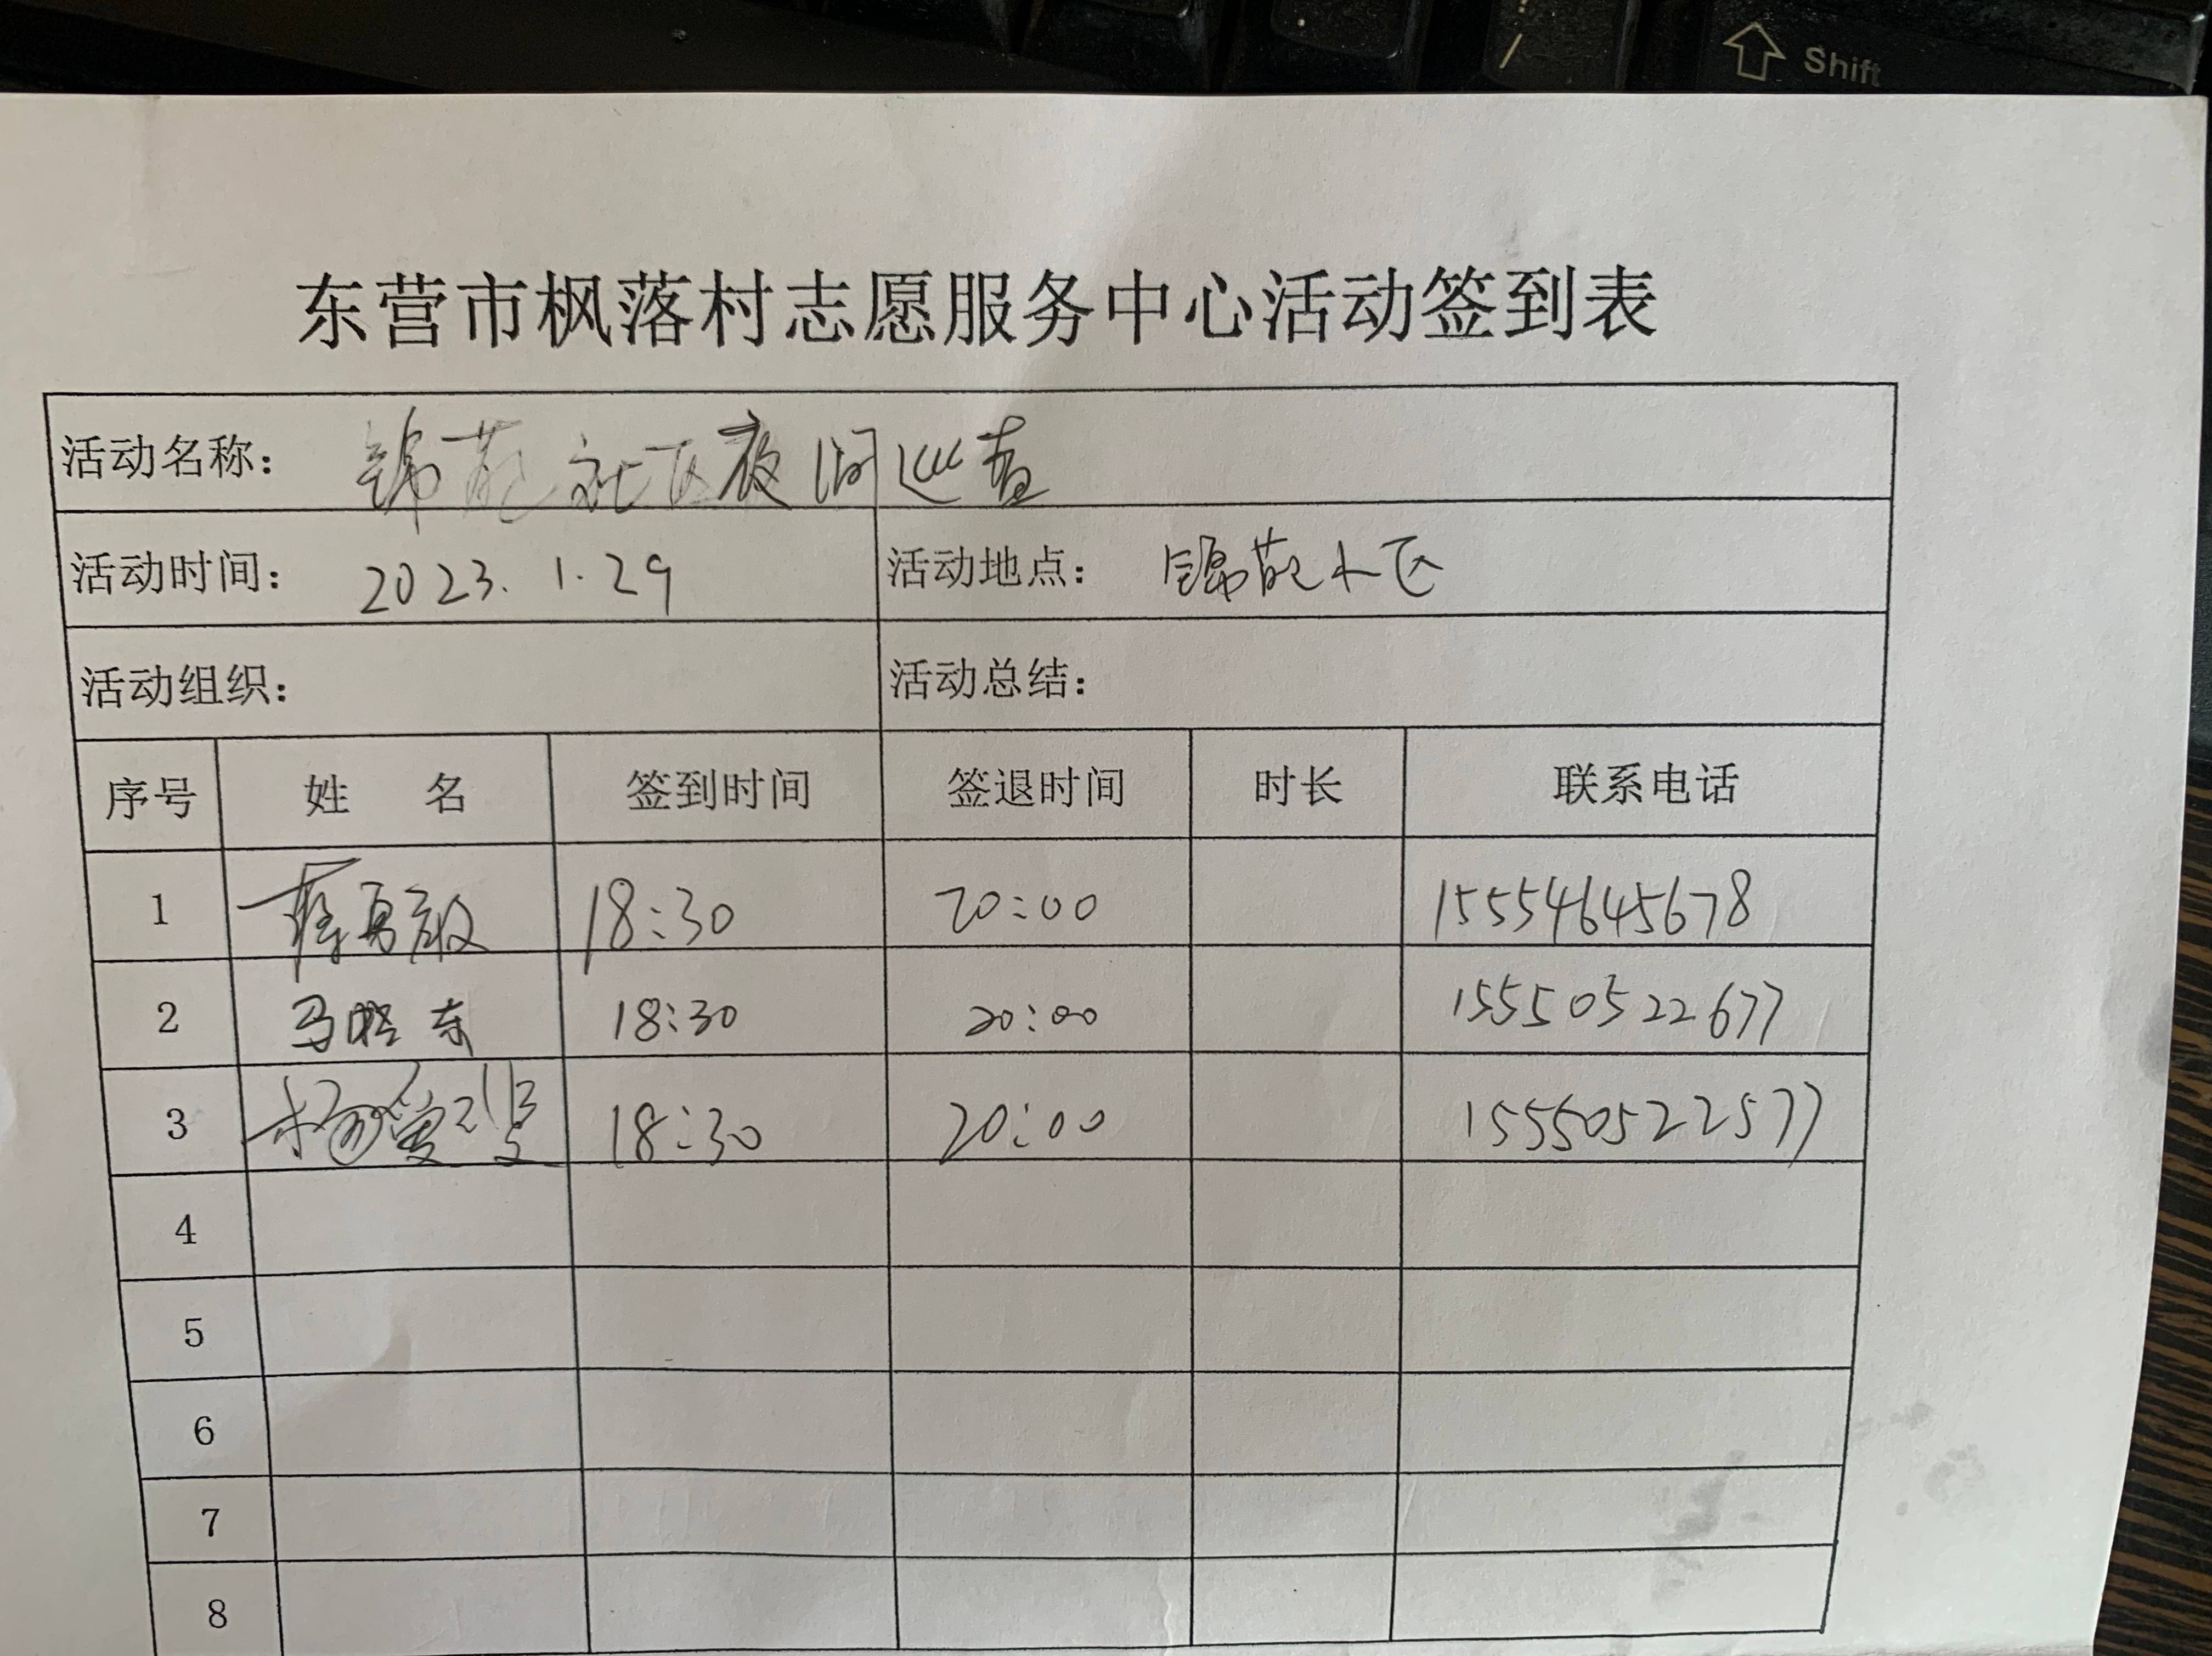 Shift
东营市枫落村志愿服务中心活动签到表
活动名称： 锦苑社区夜间巡查
活动时间： 2023.1.29 活动地点： 锦苑小区
活动组织： 活动总结：
序号 姓 名 签到时间 签退时间 时长 联系电话
1 18:30 20:00 15554645678
2 马晓东 18:30 20:00 15550522677
3 18:30 20:00 15550522577
4
5
6
7
8